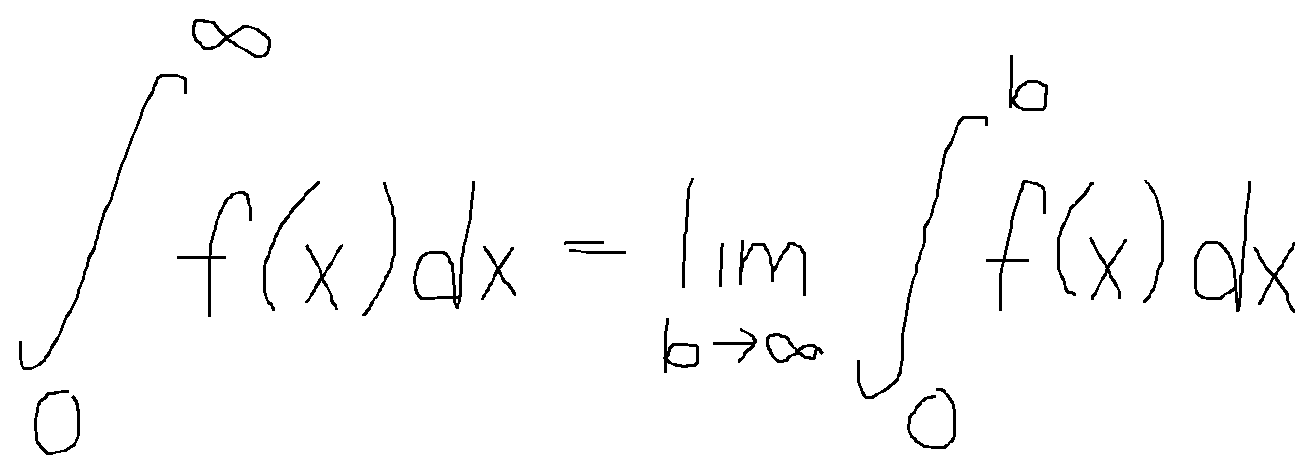 ∫₀^∞ f(x)dx = lim_{b→∞} ∫₀^b f(x)dx